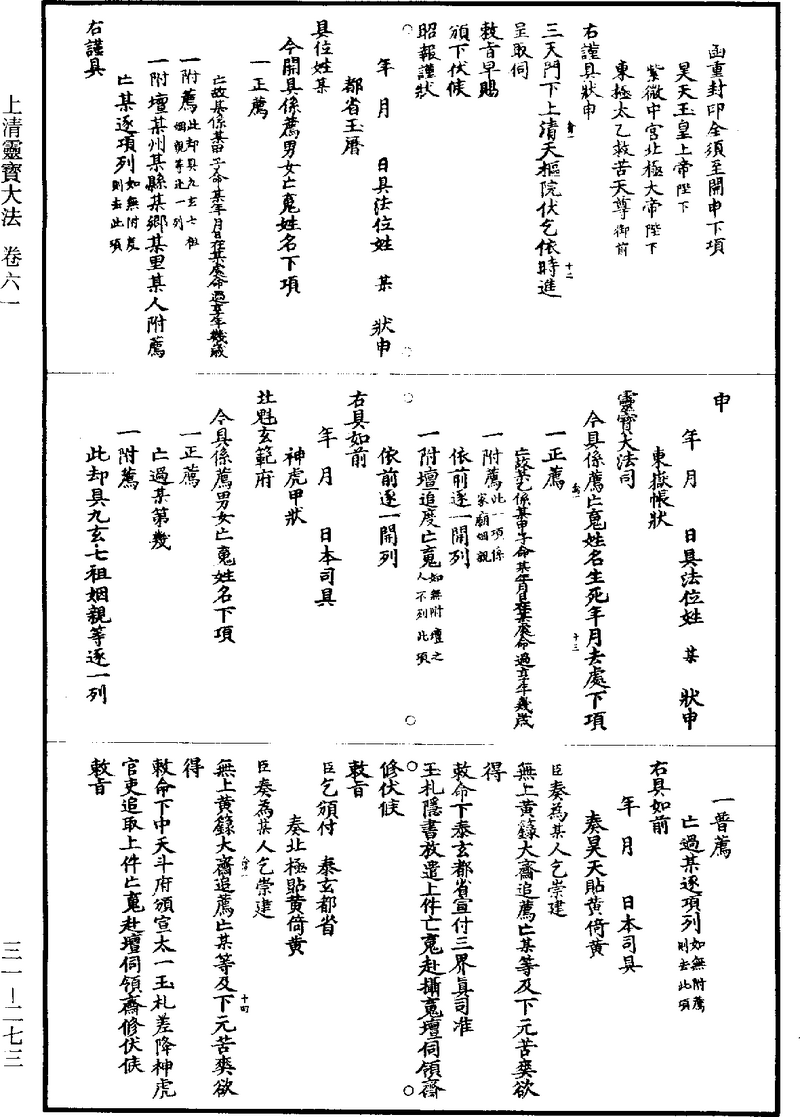 函重封印全須至開申下項
昊天玉皇上帝陛下
紫微中宮北極大帝陛下
東極太乙救苦天尊御前
右謹具狀申
三天門下上清天樞院伏乞依時進
十二
呈取伺
敕旨早賜
頒下伏候
昭報謹狀
年 月 日具法位姓 某 狀申
都省玉曆
具位姓某
今開具係薦男女亡䰟姓名下項
一正薦
亡故某係某甲子命某年月日在某處命過享年幾歲
一附薦此却具九玄七祖姻親等逐一列
一附壇某州某縣某鄉某里某人附薦
亡某逐項列如無附度則去此項
右謹具
申
年 月 日具法位姓 某 狀申
東嶽帳狀
靈寶大法司
今具係薦亡䰟姓名生死年月去處下項
十三
一正薦
亡故某乙係某甲子命某年月日在某處命過享年幾歲
一附薦此一項係家廟姻親
依前逐一開列
一附壇追度亡䰟如無附壇之人不列此項
依前逐一開列
右具如前
年 月 日本司具
神虎甲狀
北魁玄範府
今具係薦男女亡䰟姓名下項
一正薦
亡過某第幾
一附薦
此却具九玄七祖姻親等逐一列
一普薦
亡過某逐項列如無附薦則去此項
右具如前
年 月 日本司具
奏昊天貼黄倚黄
臣奏為某人乞崇建
無上黄籙大齋追薦亡某等及下元苦爽欲
得
敕命下泰玄都省宣付三界真司准
玉札隱書放遣上件亡䰟赴攝䰟壇伺領齋
修伏候
敕旨
臣乞頒付 泰玄都省
奏北極貼黄倚黄
臣奏為某人乞崇建
無上黄籙大齋追薦亡某等及下元苦爽欲
十四
得
敕命下中天斗府頒宣太一玉札差降神虎
官吏追取上件亡䰟赴壇伺領齋修伏候
敕旨
上清靈寶大法 卷六一
三一—二七三